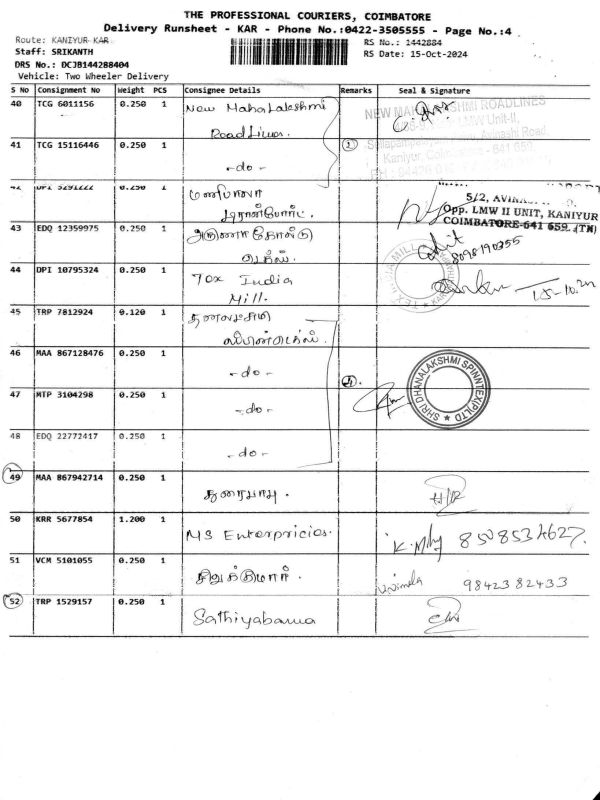 THE PROFESSIONAL COURIERS, COIMBATORE
Delivery Runsheet - KAR - Phone No.:0422-3505555 - Page No.:4
Route: KANIYUR KAR
RS No.: 1442884
Staff: SRIKANTH
RS Date: 15-Oct-2024
DRS No.: DCJB144288404
Vehicle: Two Wheeler Delivery
S No Consignment No Weight PCS Consignee Details Remarks Seal & Signature
40 TCG 6011156 0.250 1 New Mahalakshmi
Roadlines.
NEW MAHALAKSHMI ROADLINES
LMW Unit-II,
Avinashi Road,
Kaniyur, Coimbatore - 641 659
41 TCG 15116446 0.250 1
-do-
42 DPI 5291222 0.250 1
டிரான்போர்ட்.
5/2,
Opp. LMW II UNIT, KANIYUR
COIMBATORE-641 659. (TN)
43 EDQ 12359975 0.250 1 அருணா கோல்டு
8098190355
44 DPI 10795324 0.250 1 Tex India
Mill.
15-10-24
45 TRP 7812924 0.120 1 தனலட்சுமி
46 MAA 867128476 0.250 1
-do-
SHRI DHANALAKSHMI SPINNTEX(P)LTD
47 MTP 3104298 0.250 1
-do-
48 EDQ 22772417 0.250 1
-do-
49 MAA 867942714 0.250 1
50 KRR 5677854 1.200 1 MS Enterpricies.
8508534627.
51 VCM 5101055 0.250 1
9842382433
52 TRP 1529157 0.250 1
Sathiyabama